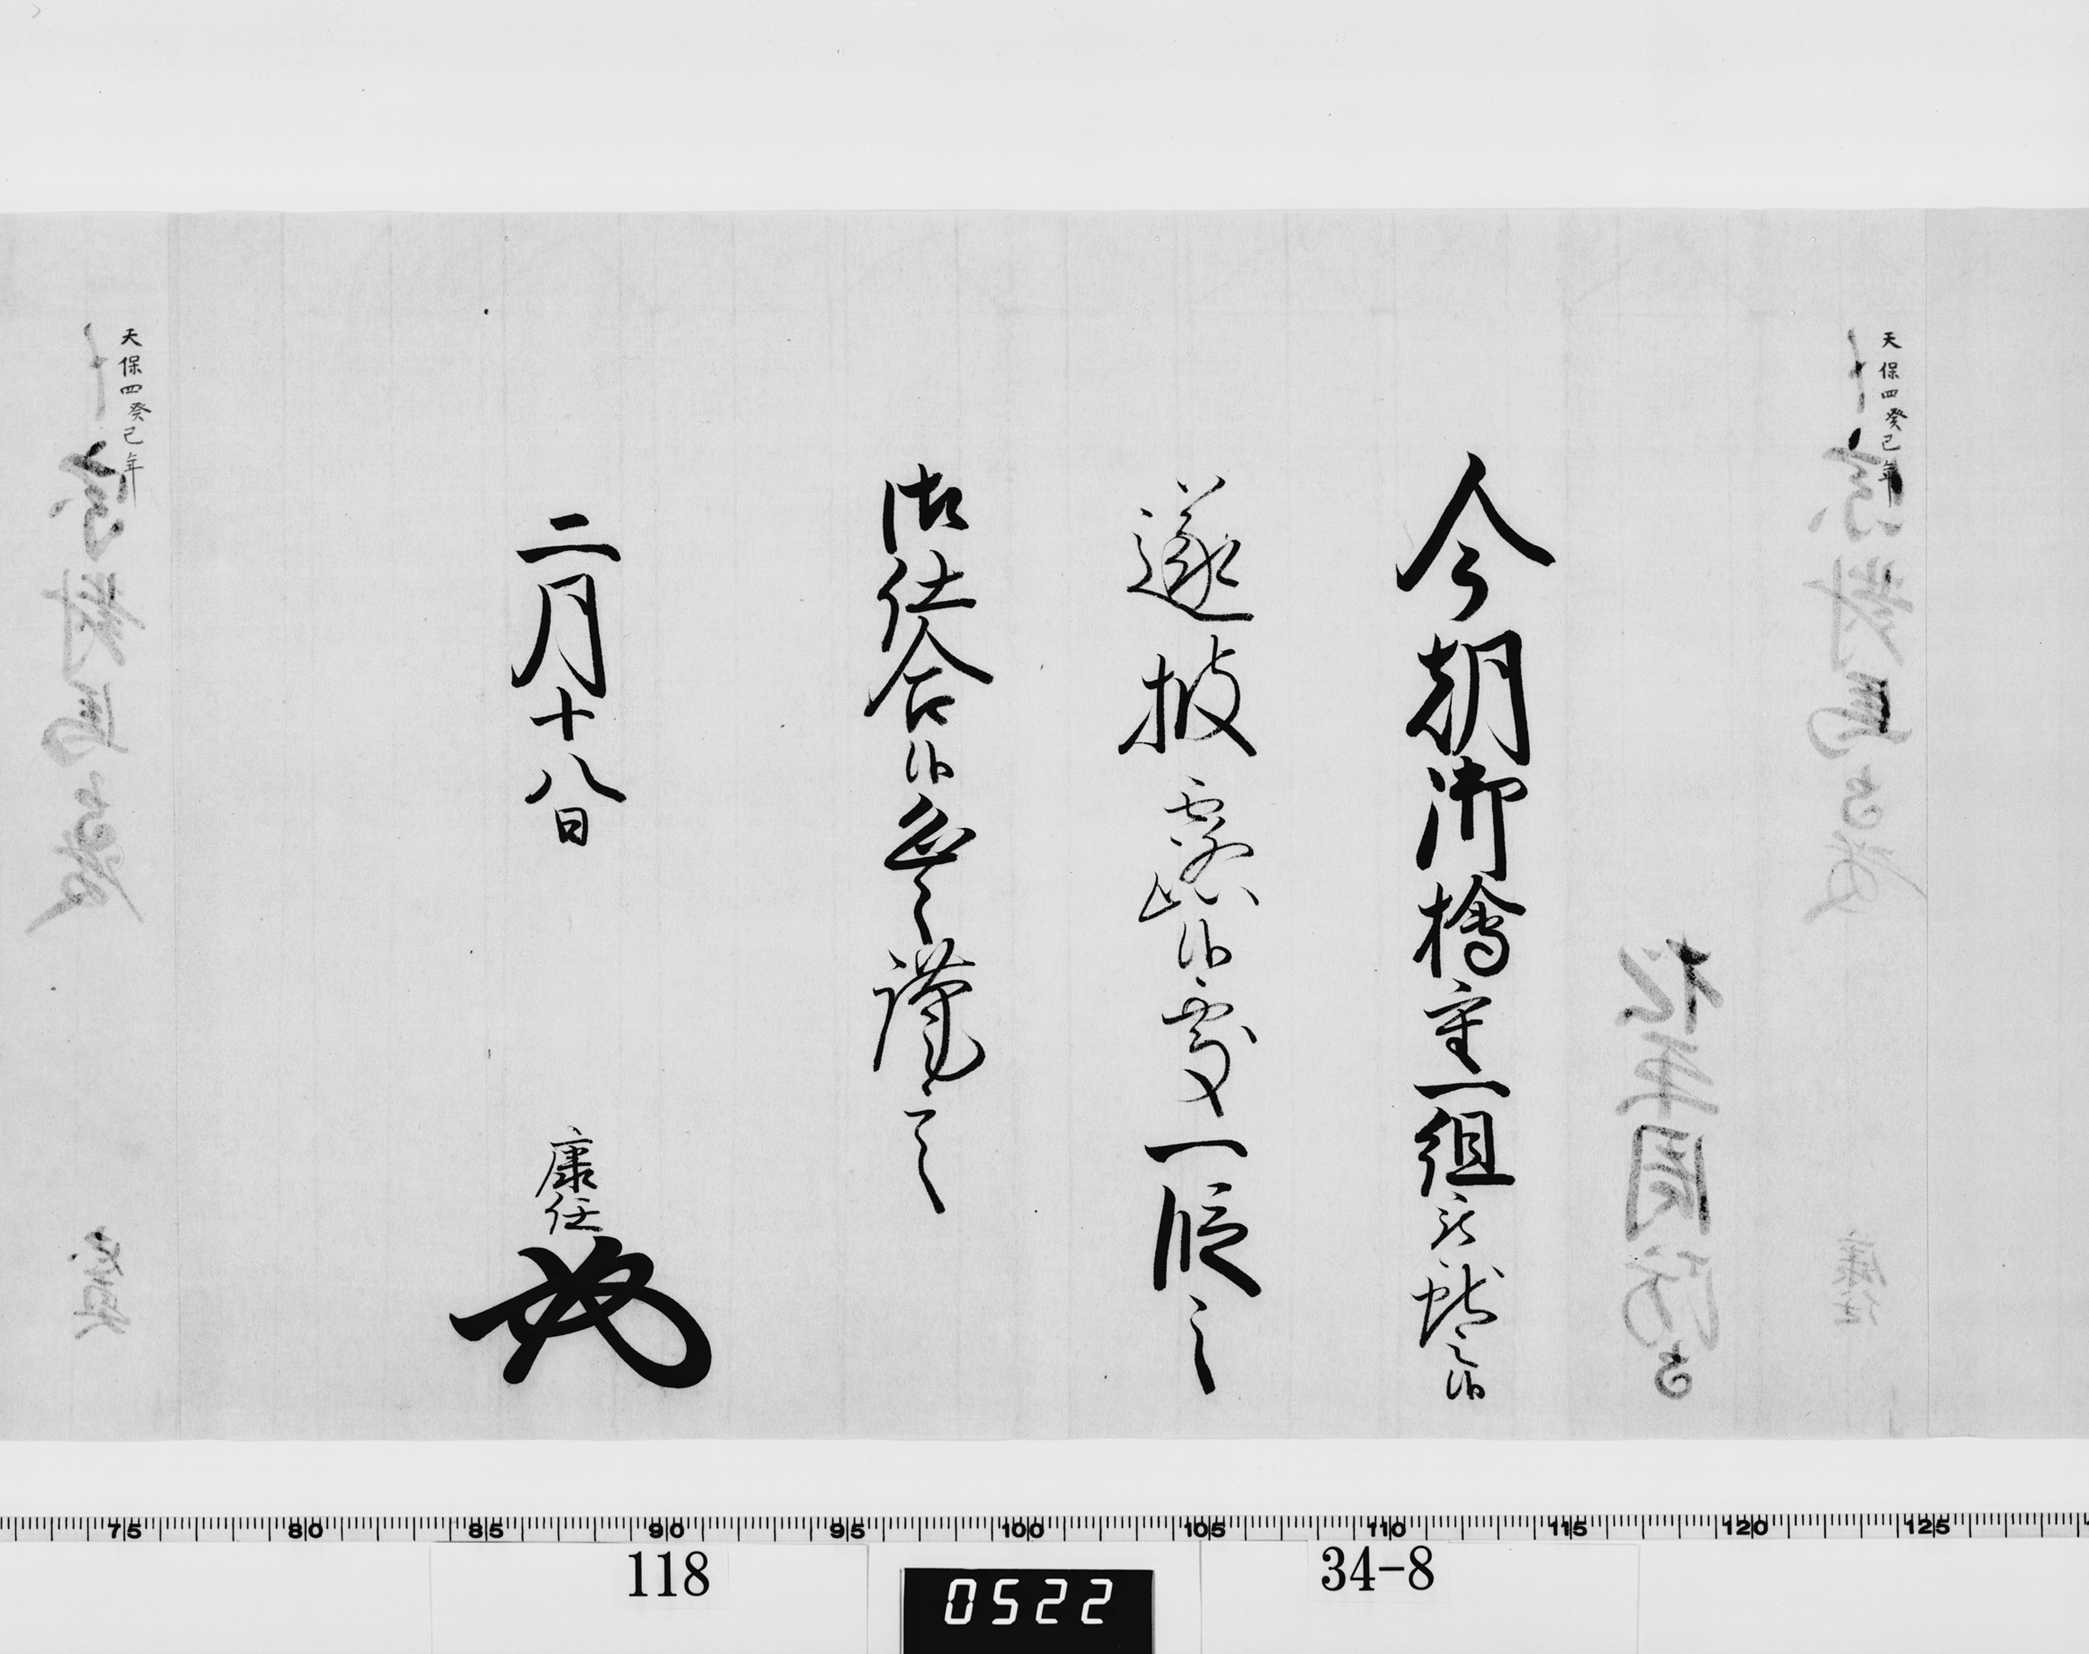 天保四癸巳年
今朝御檜重一組被献之候
遂披露候處一段之
御仕合候恐々謹言
二月十八日
康任
天保四癸巳年
75 80 85 90 95 100 105 110 115 120 125
118
0522
34-8